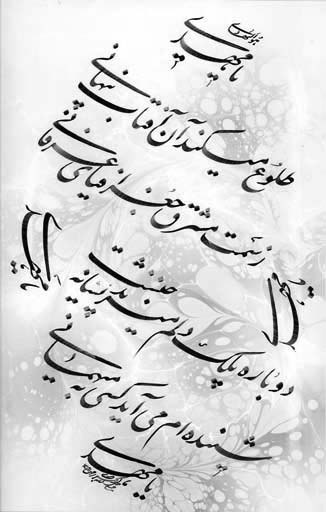 یا مهدی
طلوع میکند آن آفتاب پنهانی
ز سمت مشرق جغرافیای عرفانی
دوباره پلک دلم میپرد نشانه چیست
شنیده ام می آید کسی به مهمانی
یا مهدی